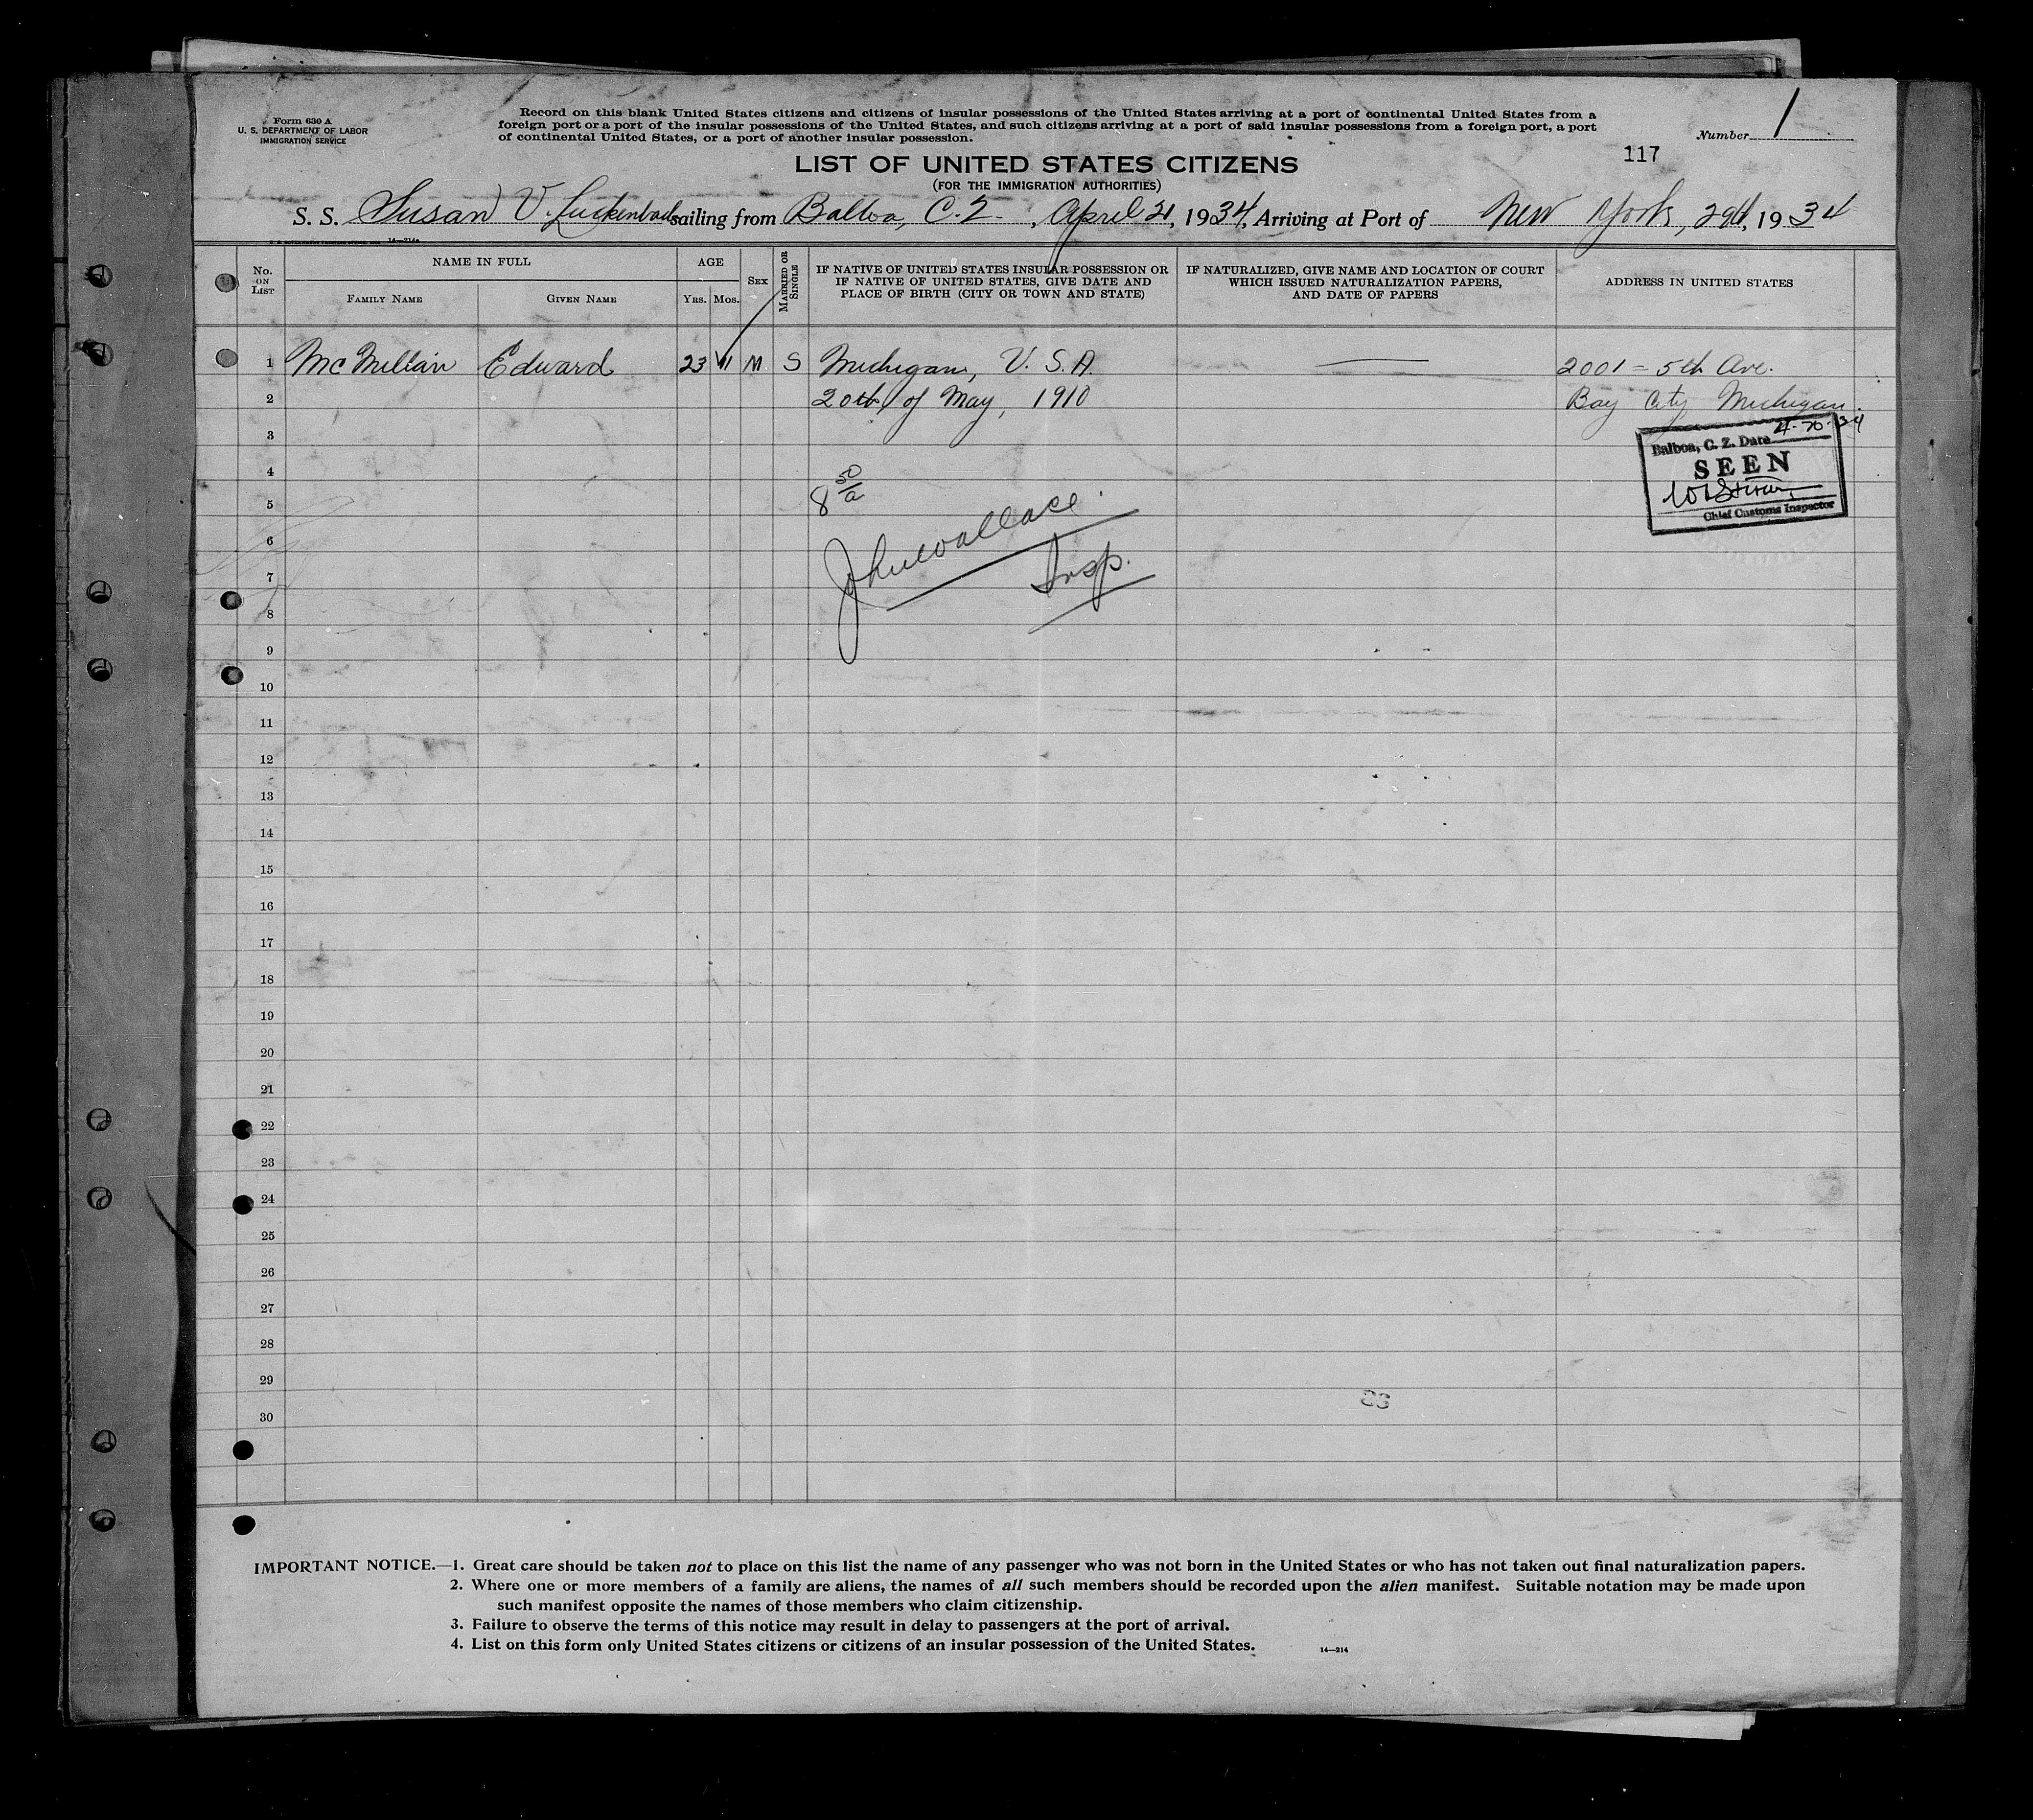 Form 630 A
U. S. DEPARTMENT OF LABOR
IMMIGRATION SERVICE
Record on this blank United States citizens and citizens of insular possessions of the United States arriving at a port of continental United States from a
foreign port or a port of the insular possessions of the United States, and such citizens arriving at a port of said insular possessions from a foreign port, a port
of continental United States, or a port of another insular possession.
Number 1
117
LIST OF UNITED STATES CITIZENS
(FOR THE IMMIGRATION AUTHORITIES)
S. S. Susan V. Luckenbach sailing from Balboa, C. Z. , April 21, 1934, Arriving at Port of New York, 29th, 1934
14—214a
No. ON LIST
NAME IN FULL
FAMILY NAME
GIVEN NAME
AGE
YRS.
MOS.
SEX
MARRIED OR SINGLE
IF NATIVE OF UNITED STATES INSULAR POSSESSION OR
IF NATIVE OF UNITED STATES, GIVE DATE AND
PLACE OF BIRTH (CITY OR TOWN AND STATE)
IF NATURALIZED, GIVE NAME AND LOCATION OF COURT
WHICH ISSUED NATURALIZATION PAPERS,
AND DATE OF PAPERS
ADDRESS IN UNITED STATES
1 McMillan Edward 23 11 M S Michigan, U. S. A. 2001 = 5th Ave.
2 20th of May, 1910 Bay City Michigan.
Balboa, C. Z. Date
SEEN
Chief Customs Inspector
3
4
8 50/a
5
John Wallace
6
Insp.
7
8
9
10
11
12
13
14
15
16
17
18
19
20
21
22
23
24
25
26
27
28
29
30
IMPORTANT NOTICE.—1. Great care should be taken not to place on this list the name of any passenger who was not born in the United States or who has not taken out final naturalization papers.
2. Where one or more members of a family are aliens, the names of all such members should be recorded upon the alien manifest. Suitable notation may be made upon
such manifest opposite the names of those members who claim citizenship.
3. Failure to observe the terms of this notice may result in delay to passengers at the port of arrival.
4. List on this form only United States citizens or citizens of an insular possession of the United States.
14—214